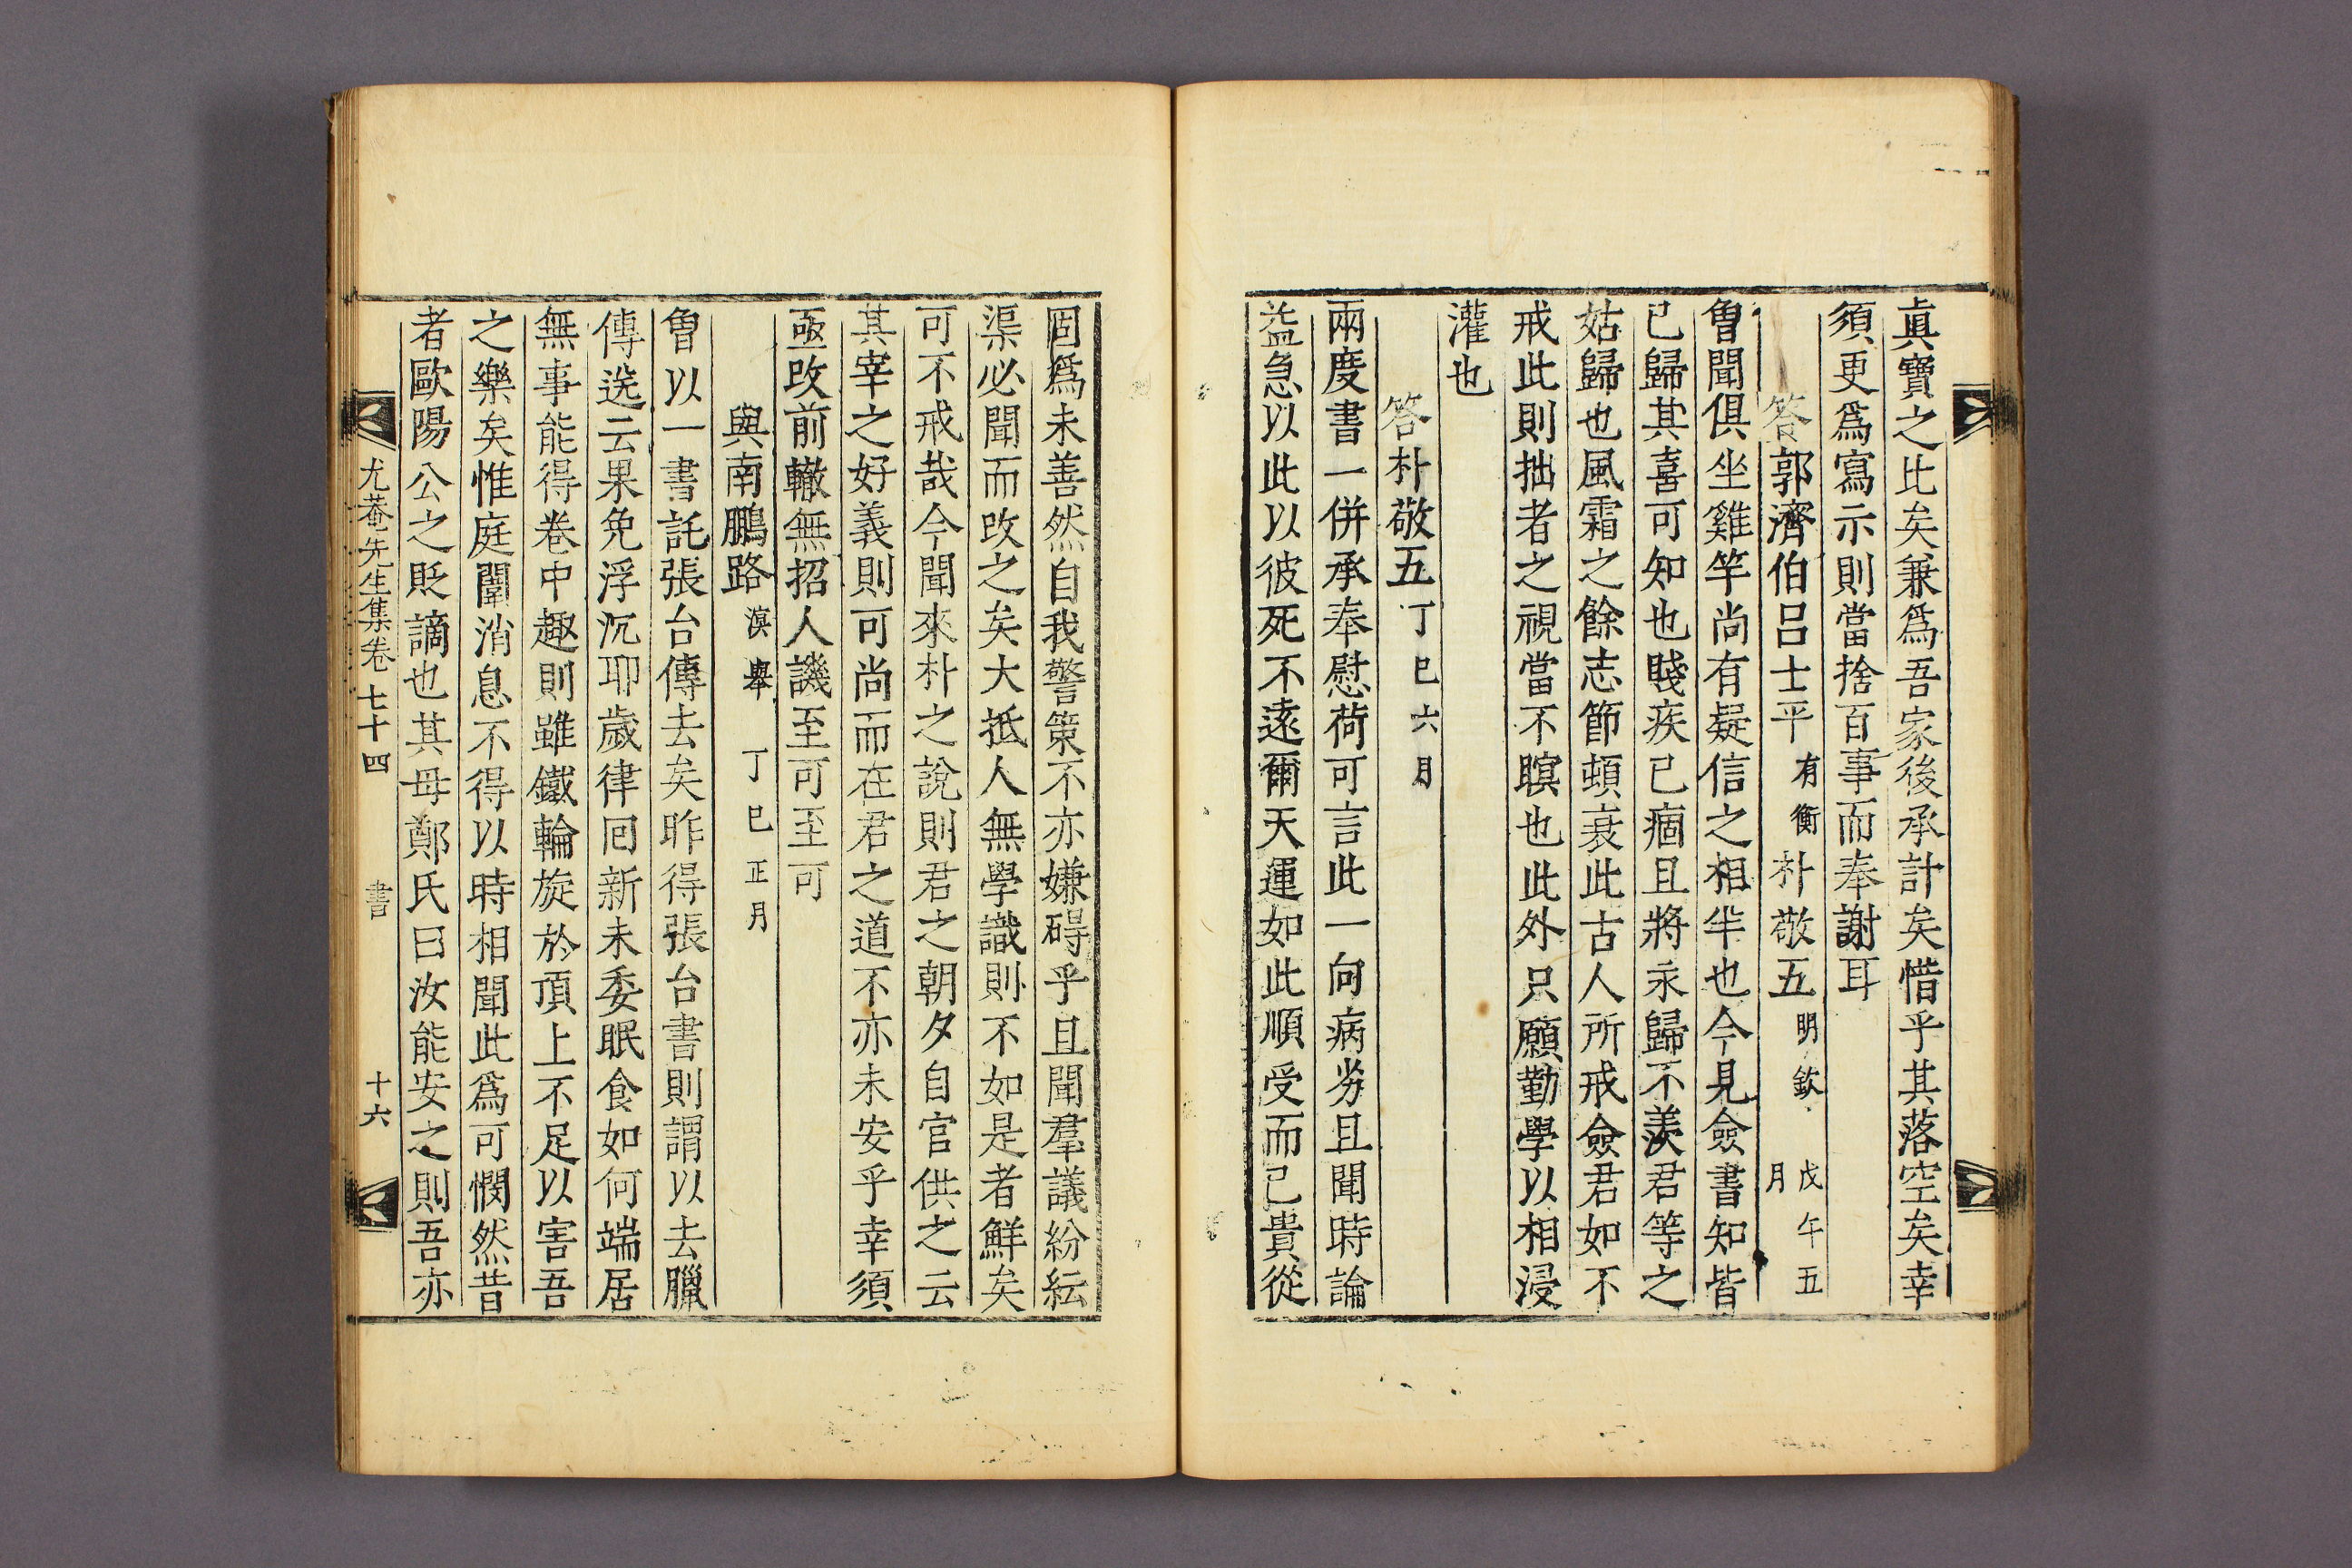 眞寶之比矣兼爲吾家後承計矣惜乎其落空矣幸
須更爲寫示則當捨百事而奉謝耳
答郭濟伯呂士平有衡朴敬五明欽戊午五月
曾聞俱坐雞竿尚有疑信之相半也今見僉書知皆
已歸其喜可知也賤疾已痼且將永歸不羨君等之
姑歸也風霜之餘志節頓衰此古人所戒僉君如不
戒此則拙者之視當不瞑也此外只願勤學以相浸
灌也
答朴敬五丁巳六月
兩度書一併承奉慰荷可言此一向病劣且聞時論
益急以此以彼死不遠爾天運如此順受而已貴從
固爲未善然自我警策不亦嫌碍乎且聞羣議紛紜
渠必聞而改之矣大抵人無學識則不如是者鮮矣
可不戒哉今聞來朴之說則君之朝夕自官供之云
其宰之好義則可尚而在君之道不亦未安乎幸須
亟改前轍無招人譏至可至可
與南鵬路溟擧丁巳正月
曾以一書託張台傳去矣昨得張台書則謂以去臘
傳送云果免浮沉耶歲律回新未委眠食如何端居
無事能得卷中趣則雖鐵輪旋於頂上不足以害吾
之樂矣惟庭闈消息不得以時相聞此爲可憫然昔
者歐陽公之貶謫也其母鄭氏曰汝能安之則吾亦
尤菴先生集卷七十四 書 十六